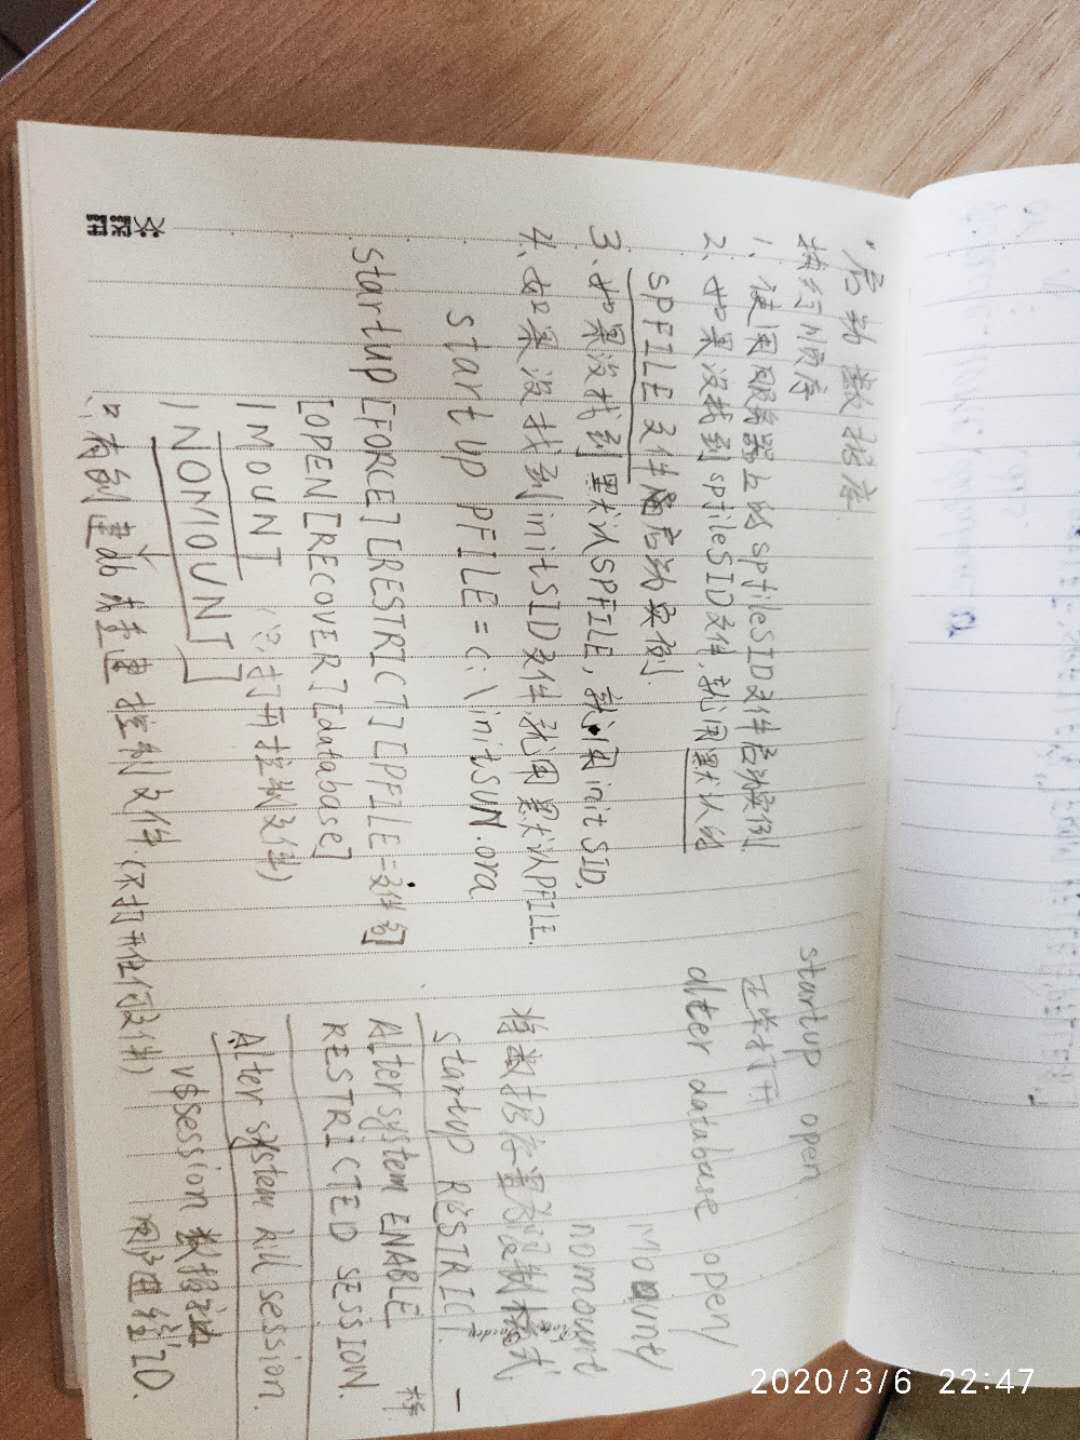 ·启动数据库
执行顺序
1、使用服务器上的spfileSID文件启动实例.
2、如果没找到spfileSID文件,就用默认的
SPFILE文件启动实例.
3、如果没找到默认SPFILE,就用initSID.
4、如果没找到initSID文件,就用默认PFILE.
startup PFILE=c:\initSUN.ora
startup [FORCE][RESTRICT][PFILE=文件名]
[OPEN[RECOVER][database]
|MOUNT (只打开控制文件)
|NOMOUNT]
只有创建db或重建控制文件.(不打开任何文件)
startup open
正常打开
alter database open/
mount/
nomount
将数据库置为限制模式
startup RESTRICT.
Alter system ENABLE
RESTRICTED SESSION.
Alter system kill session.
v$session 数据
用户 ID.
2020/3/6 22:47